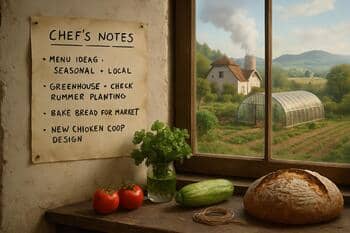 CHEF'S NOTES
• MENU IDEAG •
SEASONAL • LOCAL
• GREENHOUSE • CHECK
RUMMER PLANTING
• BAKE BREAD FOR MARKET
• NEW CHIOKEN COOP
DESIGN